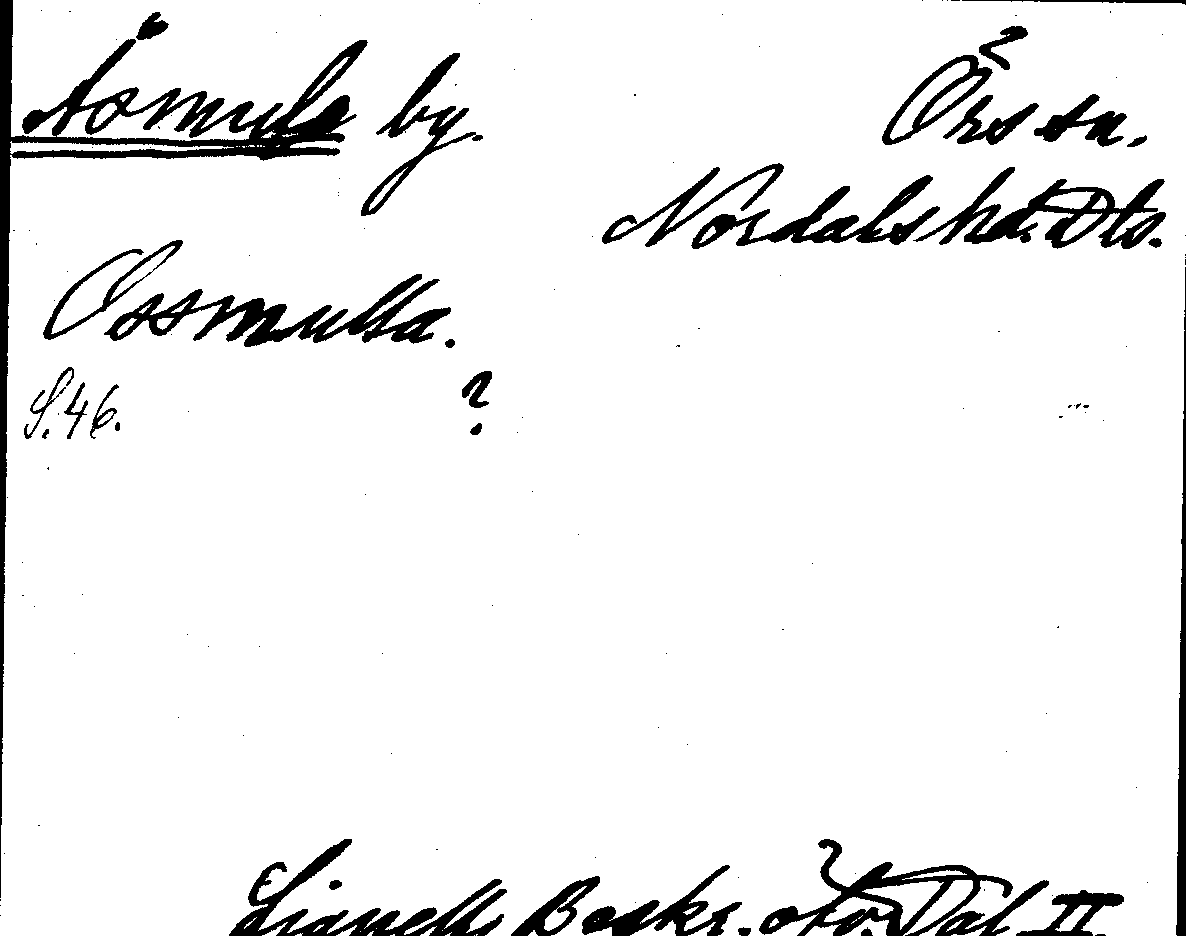 Åsmule by.
Örs sn.
Nordals hd. Dls.
Ossmulla.
S. 46.
?
Lignell, Beskr. öfv. Dal II.